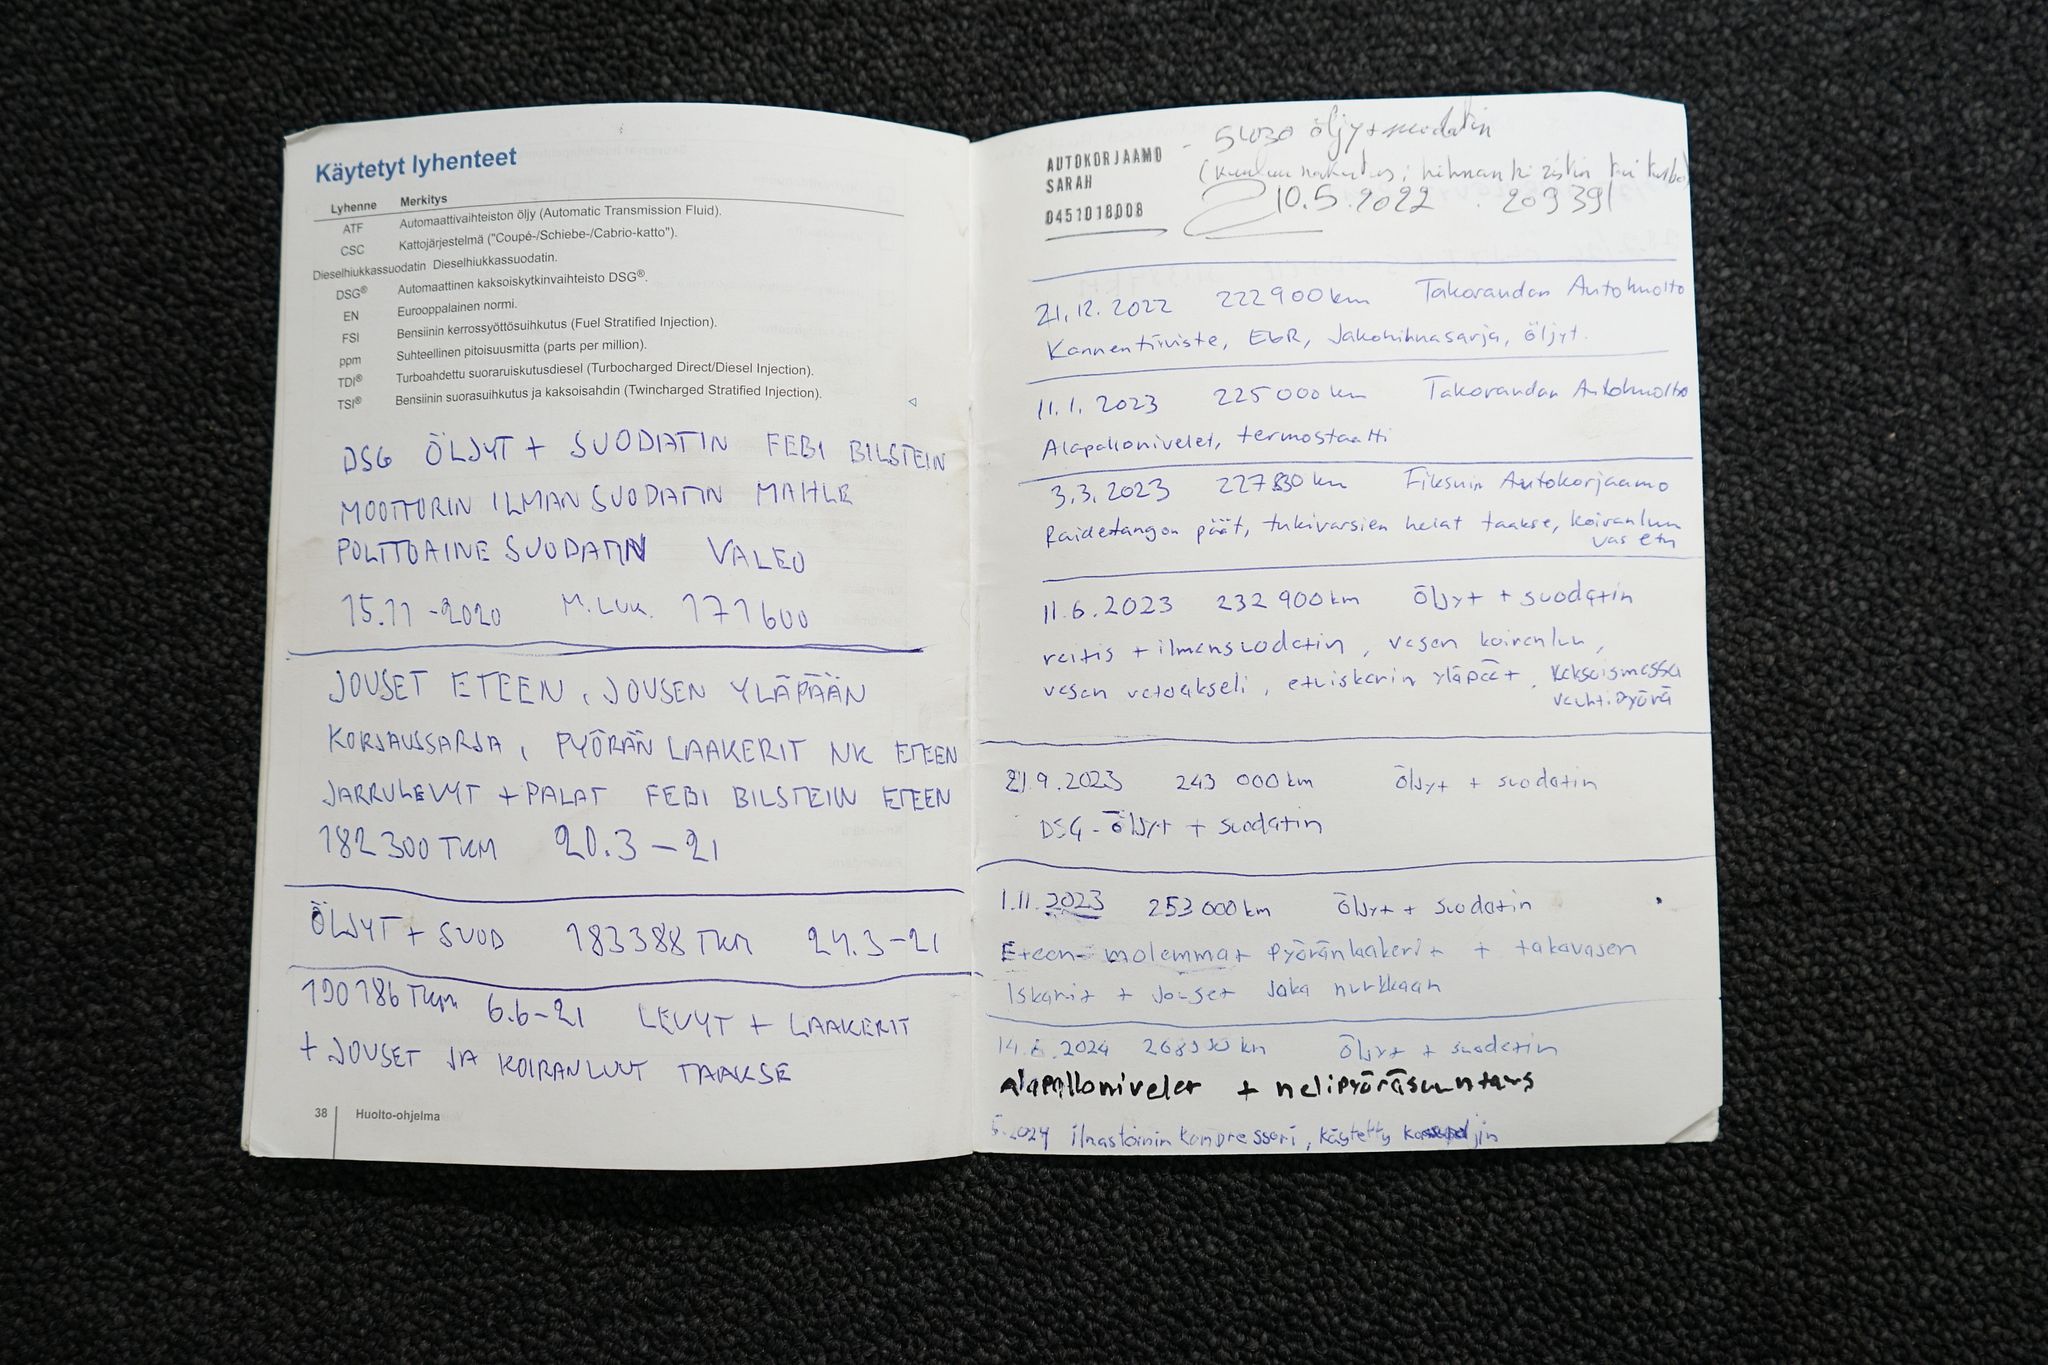 Käytetyt lyhenteet
Lyhenne Merkitys
ATF Automaattivaihteiston öljy (Automatic Transmission Fluid).
CSC Kattojärjestelmä ("Coupé-/Schiebe-/Cabrio-katto").
Dieselhiukkassuodatin Dieselhiukkassuodatin.
DSG® Automaattinen kaksoiskytkinvaihteisto DSG®.
EN Eurooppalainen normi.
FSI Bensiinin kerrossyöttösuihkutus (Fuel Stratified Injection).
ppm Suhteellinen pitoisuusmitta (parts per million).
TDI® Turboahdettu suoraruiskutusdiesel (Turbocharged Direct/Diesel Injection).
TSI® Bensiinin suorasuihkutus ja kaksoisahdin (Twincharged Stratified Injection).
DSG ÖLJYT + SUODATIN FEBI BILSTEIN
MOOTTORIN ILMAN SUODATIN MAHLE
POLTTOAINE SUODATIN VALEO
15.11-2020 M.LUK. 171600
JOUSET ETEEN, JOUSEN YLÄPÄÄN
KORJAUSSARJA, PYÖRÄN LAAKERIT NK ETEEN
JARRULEVYT + PALAT FEBI BILSTEIN ETEEN
182300 TKM 20.3-21
ÖLJYT + SUOD 183388 TKM 24.3-21
190786 TKM 6.6-21 LEVYT + LAAKERIT
+ JOUSET JA KOIRANLUUT TAAKSE
38 Huolto-ohjelma
AUTOKORJAAMO
SARAH
0451018008
- 5w30 öljy + suodatin
10.5.2022 209391
21.12.2022 222900km Takorandan Autohuolto
Kannentiiviste, EGR, Jakohihnasarja, öljyt.
11.1.2023 225000km Takorandan Autohuolto
Alapallonivelet, termostaatti
3.3.2023 227830km Fiksuin Autokorjaamo
Raidetangon päät, tukivarsien helat taakse, koiranluu
vas etu
11.6.2023 232900km Öljyt + suodatin
raitis + ilmansuodatin, vasen koiranluu,
vasen vetoakseli, etuiskarin yläpäät, kaksoismassa
vauhtipyörä
21.9.2023 243 000km Öljyt + suodatin
DSG-Öljyt + suodatin
1.11.2023 253000km Öljyt + suodatin
Eteen molemmat pyöränlaakerit + takavasen
Iskarit + Jouset joka nurkkaan
2024 km Öljyt + suodatin
alapallonivelet + nelipyöräsuuntaus
5.2024 ilmastoinin kompressori, käytetty